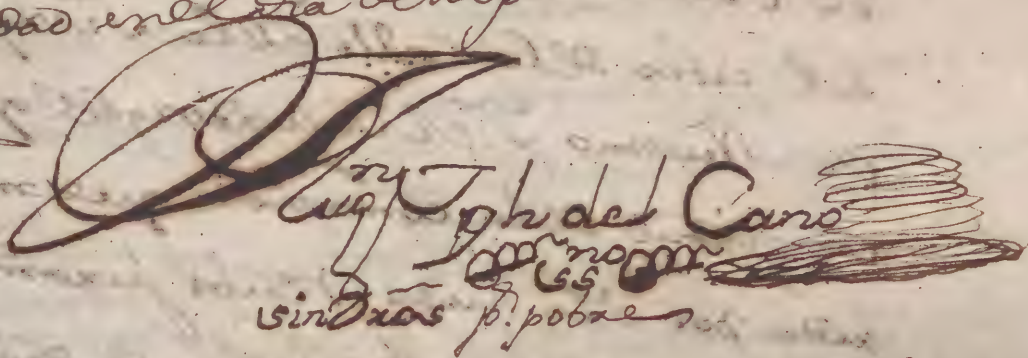 dad en el dia
Jph del Cano
ss no
sin dr̃os p. pobre